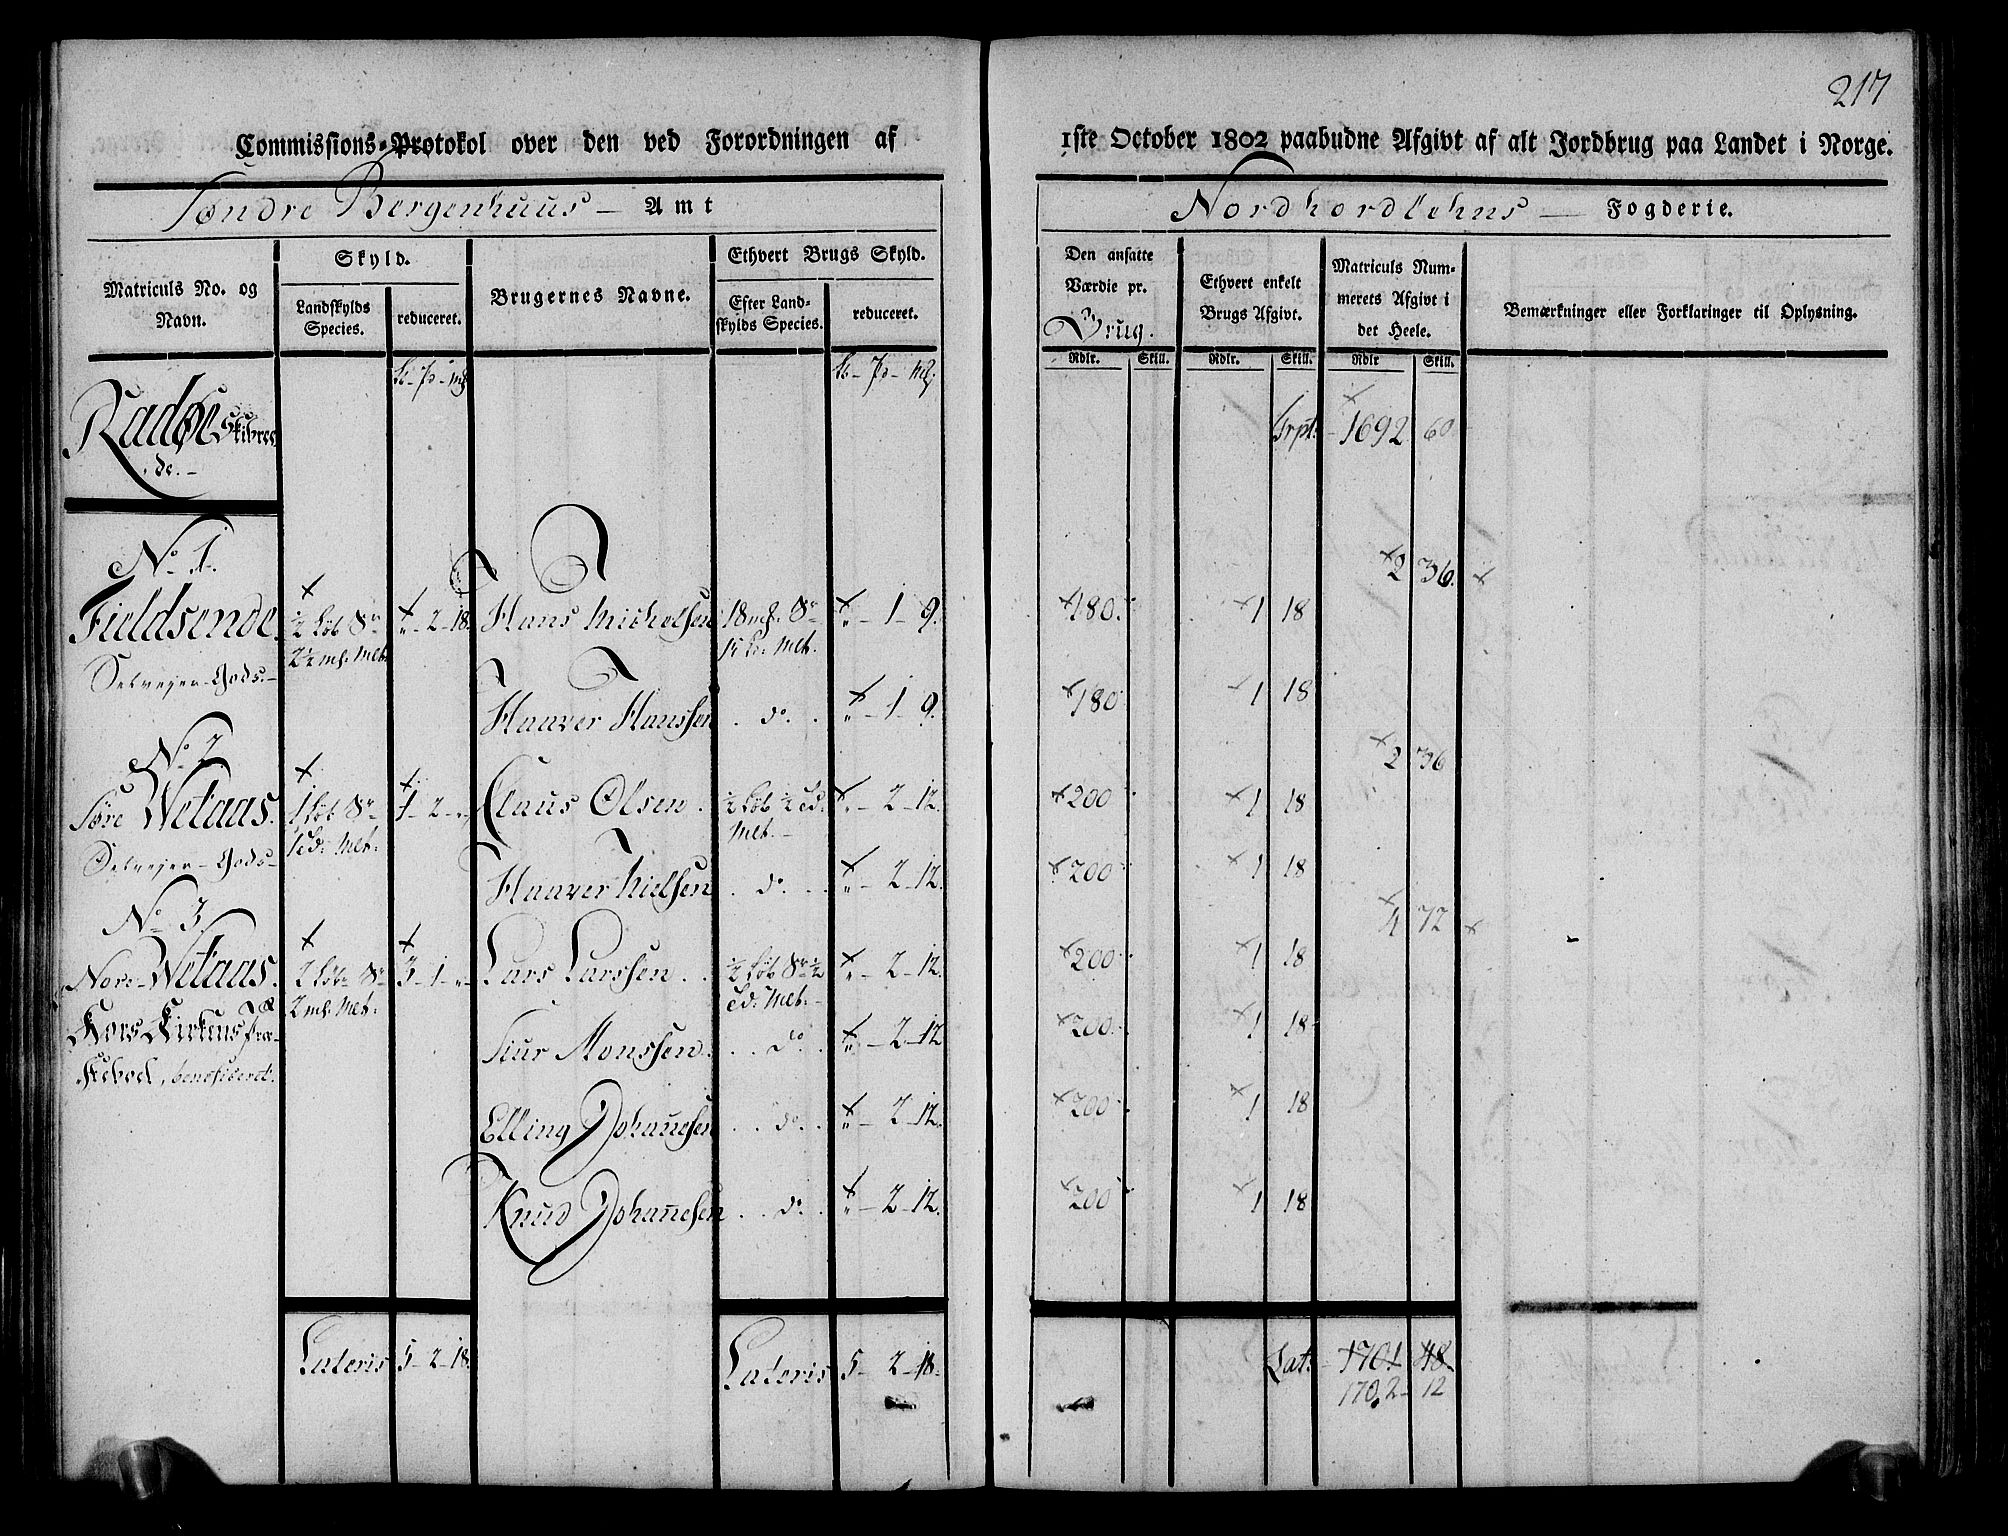 217
Commissions-Protokol over den ved Forordningen af 1ste October 1802 paabudne Afgivt af alt Jordbrug paa Landet i Norge.
Søndre Bergenhuus – Amt
Nordhordlehns – Fogderie.
Matriculs No. og Navn.
Skyld.
Landskylds Species.
reduceret.
Brugernes Navne.
Ethvert Brugs Skyld.
Efter Landskylds Species.
reduceret.
Den ansatte Værdie pr. Brug.
Ethvert enkelt Brugs Afgivt.
Matriculs Nummerets Afgivt i det Heele.
Bemærkninger eller Forklaringer til Oplysning.
Rdlr. Skill. Rdlr. Skill. Rdlr Skill.
Radøe Skibrede. – Trpt. – 1692 60
No. 1. 2 36.
Fieldsende. ½ Løb Sr 2½ mk. Melt. „ - 2 - 18. Hans Michelsen 18 mk. Sr „ - 1 - 9. 180. 1 18
Selvejer-Gods.–
Haaver Hanssen . do. . „ - 1 - 9. 180 1 18
No. 2. 2 36
Søre Wetaas. 1 Løb Sr 1 Td: Melt: 1 - 2 - „ Claus Olsen. ½ Løb ½ Td: Melt.– „ - 2 - 12. 200 1 18
Selvejer-Gods–
Haaver Nielsen . do . . „ - 2 - 12. 200 1 18
No. 3 4 72
Nore-Wetaas. 2 Løb Sr 2 mk. Melt: 3 - 1 - „ Lars Larssen . . ½ Løb Sr ½ Td: Melt.– „ - 2 - 12. 200 1 18
Kors Kirkens
Siur Monssen. . . do . „ - 2 - 12 200. 1 18
beneficeret.
Elling Johannesen . . do. . „ - 2 - 12. 200 1 18
Knud Johannesen . . do . „ - 2 - 12. 200 1 18
Lateris 5 - 2 - 18. Lateris 5 - 2 - 18. Lat: – 1701 48.
1702 - 12